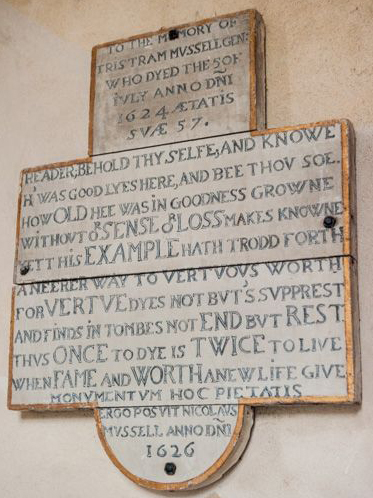 TO THE MEMORY OF
TRISTRAM MVSSELL GEN:
WHO DYED THE 5 OF
IVLY ANNO DÑI
1624 ÆTATIS
SVÆ 57.
READER, BEHOLD THY SELFE, AND KNOWE
H' WAS GOOD LYES HERE, AND BEE THOV SOE.
HOW OLD HEE WAS IN GOODNESS GROWNE
WITHOVT OR SENSE OR LOSS MAKES KNOWNE
YETT HIS EXAMPLE HATH TRODD FORTH
A NEERER WAY TO VERTVOVS WORTH
FOR VERTVE DYES NOT BVT'S SVPPREST
AND FINDS IN TOMBES NOT END BVT REST
THVS ONCE TO DYE IS TWICE TO LIVE
WHEN FAME AND WORTH A NEW LIFE GIVE
MONVMENTVM HOC PIETATIS
ERGO POSVIT NICOLAVS
MVSSELL ANNO DÑI
1626